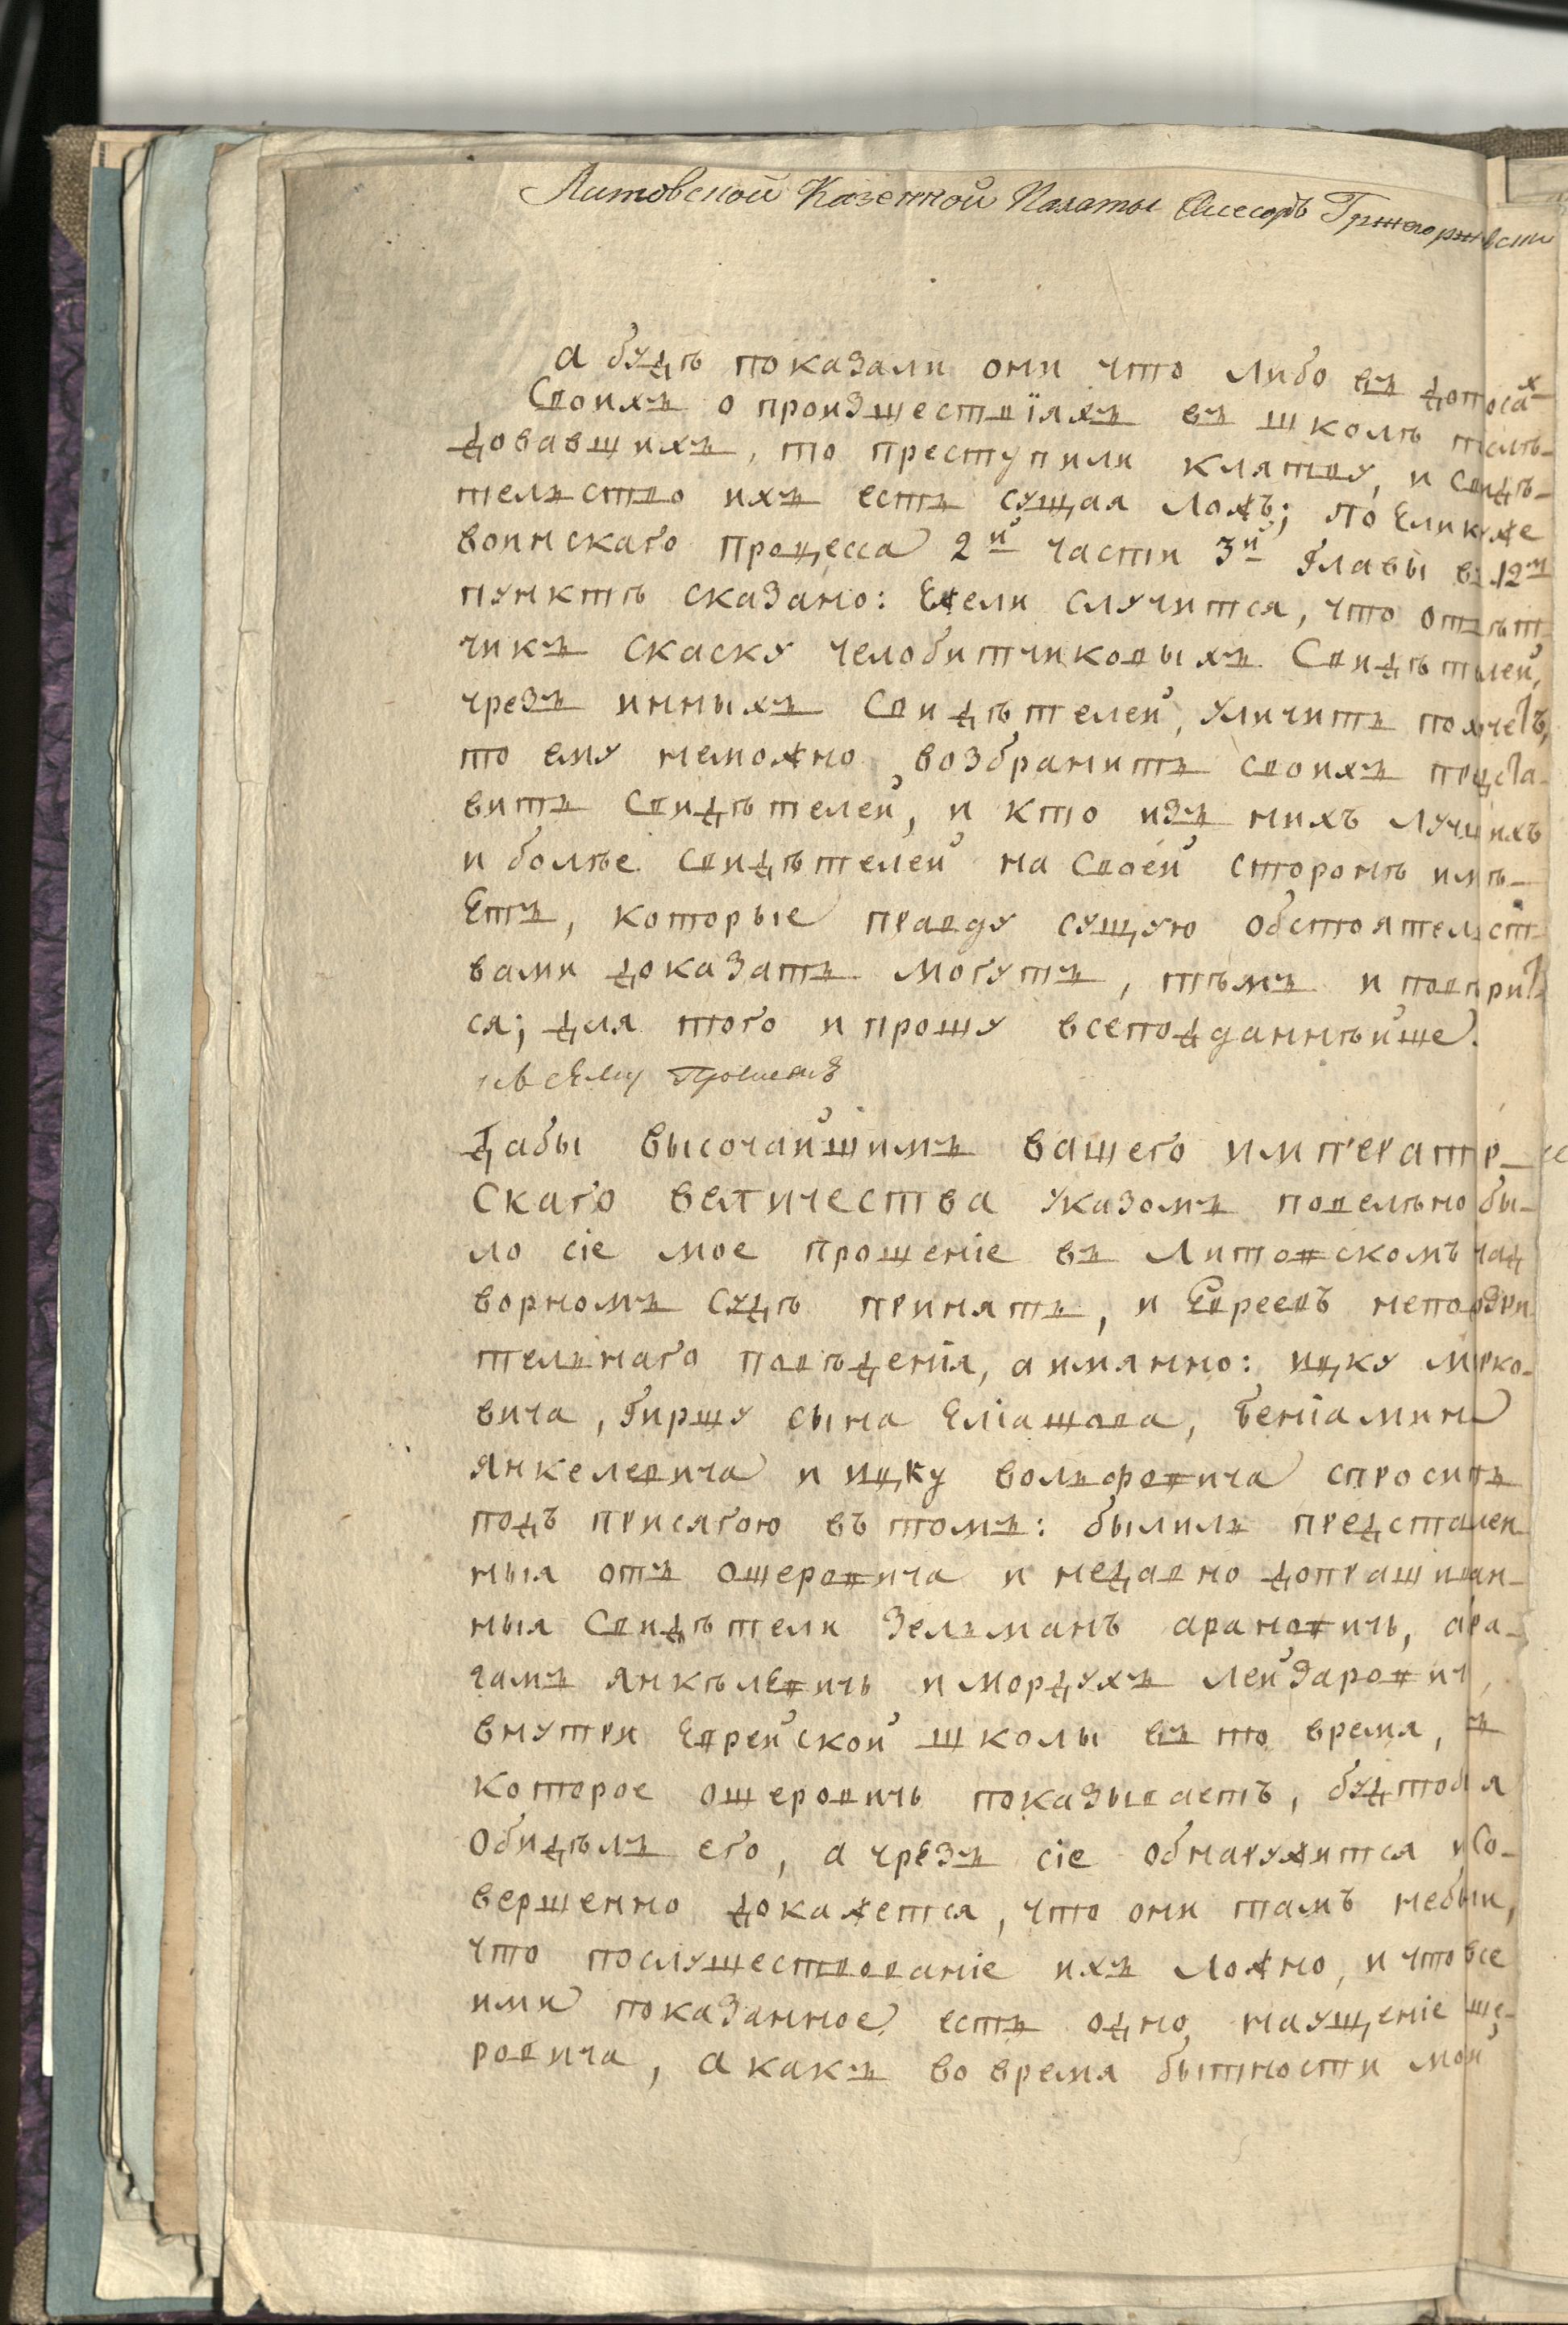 Литовской Казенной Палаты Асесоръ
а будѣ показали они что либо въ
Своихъ о произшествіяхъ въ школѣ
довавшихъ, то преступили клятву, и свидѣ-
тельство ихъ есть сущая ложь; по Елику же
воинскаго процесса 2й части 3й главы въ 12мъ
пунктѣ сказано: Ежели случится, что отвѣт
чикъ скаску челобитчиковыхъ Свидѣтелей,
чрезъ инныхъ Свидѣтелей, уличить похчетъ,
то ему неможно возбранить своихъ предста-
вить Свидѣтелей, и кто изъ нихъ лучшихъ
и болѣе свидѣтелей на Своей сторонѣ имѣ-
Етъ, которые правду сущую обстоятельст-
вами доказать могутъ, тѣмъ и повѣрит
ся; для того и прошу всеподданнѣйше.
Дабы высочайшимъ вашего императр-
Скаго величества указомъ повелѣно бы-
ло сіе мое прошеніе въ Литовскомъ над
ворномъ судѣ принять, и Евреевъ неподзри
тельнаго поведенія, а имянно: ицку Мерко-
вича, Гиршу сына Еліашова, беніамина
янкелевича и ицку вольфовича спросить
подъ присягою въ томъ: былиль представлен
ныя отъ ошеровича и недавно допрашиван-
ныя Свидѣтели Зельманъ арановичь, абра-
гамъ янкѣлевичь и мордухъ лейзарович,
внутри Еврейской школы въ то время, въ
которое ошеровичь показываетъ, будтобы я
обидѣлъ его, а чрезъ сіе обнаружится и со-
вершенно докажется, что они тамъ небыли,
что послушествованіе ихъ ложно, и что все
ими показанное есть одно наущеніе оше-
ровича, а какъ во время бытности моей